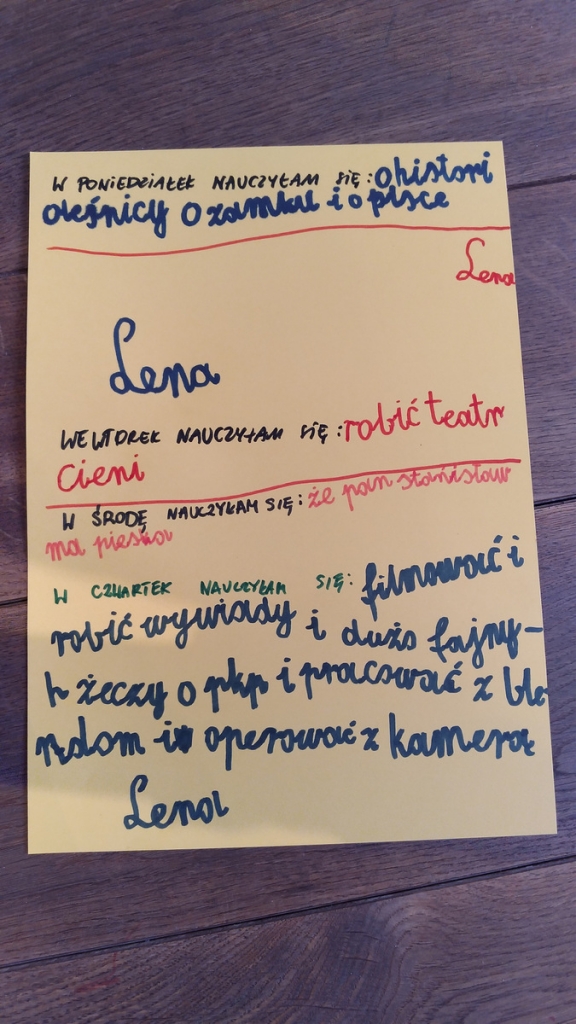 W PONIEDZIAŁEK NAUCZYŁAM SIĘ: o histori
oleśnicy o zamku i o plsce
Lena
Lena
WE WTOREK NAUCZYŁAM SIĘ: robić teatr
cieni
W ŚRODĘ NAUCZYŁAM SIĘ: że pan stanisław
ma pieska
W CZWARTEK NAUCZYŁAM SIĘ: filmować i
robić wywiady i dużo fajny-
h żeczy o pkp i pracować z
i operować z kamerą
Lena